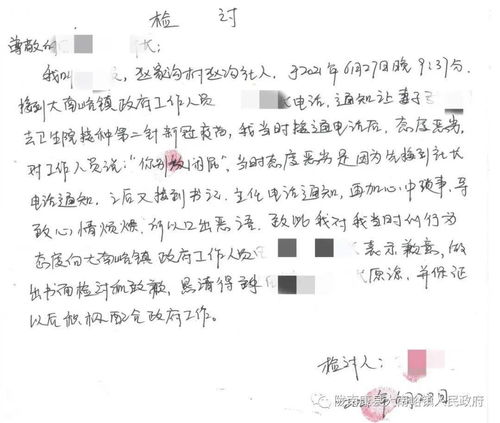 检 讨
尊敬的 长：
我叫 ，赵家沟村赵沟社人，于2021年6月27日晚9:37分，
接到大南峪镇政府工作人员 电话，通知让妻子
去卫生院接种第二针新冠疫苗，我当时接通电话后，态度恶劣，
对工作人员说："你别放闲屁"，当时态度恶劣是因为先接到社长
电话通知，之后又接到书记、主任电话通知，再加心中琐事，导
致心情烦燥，所以口出恶语，致此我对我当时的行为
态度向大南峪镇政府工作人员 表示歉意，做
出书面检讨和致歉，恳请得到 原谅，并保证
以后积极配合政府工作。
检讨人：
年6月28日
陇南康县大南峪镇人民政府